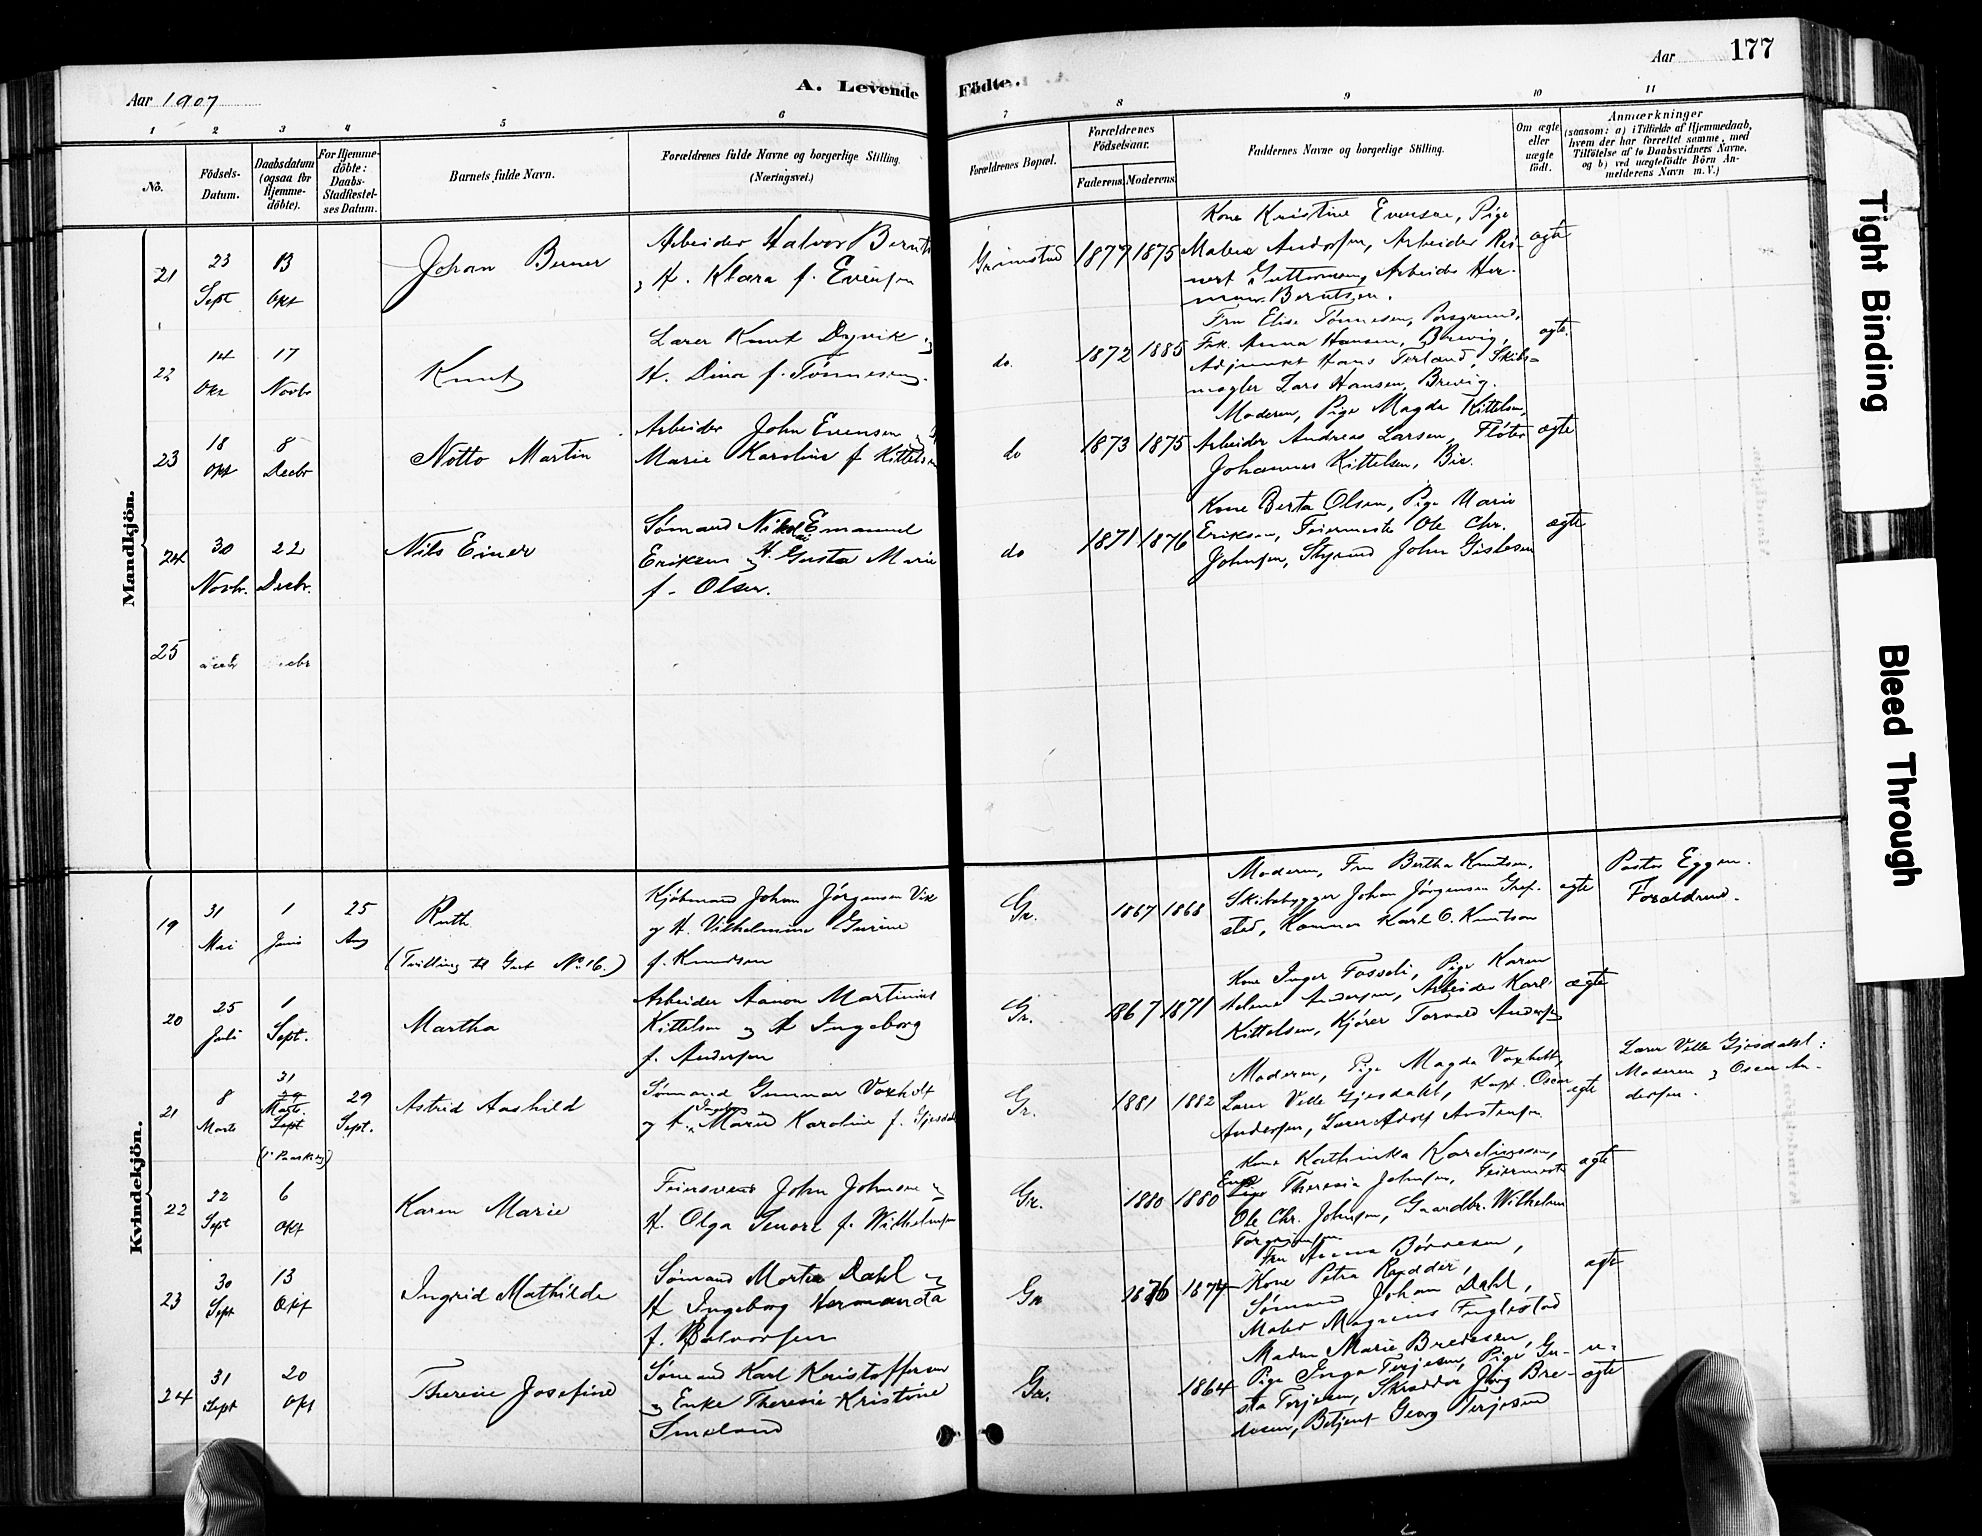 Aar 1907
A. Levende
Födte.
Aar
177
1 2 3 4 5 6 7 8 9 10 11
No.
Födsels-
Datum.
Daabsdatum
(ogsaa for
Hjemme-
döbte).
For Hjemme-
döbte:
Daabs-
Stadfæstel-
ses Datum.
Barnets fulde Navn.
Forældrenes fulde Navne og borgerlige Stilling.
(Næringsvei.)
Forældrenes Bopæl.
Forældrenes
Födselsaar.
Faderens.
Moderens.
Faddernes Navne og borgerlige Stilling.
Om ægte
eller
uægte
födt.
Anmærkninger
(saasom: a) i Tilfælde af Hjemmedaab,
hvem der har forrettet samme, med
Tilföielse af to Daabsvidners Navne,
og b) ved uægtefödte Börn An-
melderens Navn m. V.)
Mandkjön.
21
23
Sept
13
Okt
Johan Berner
Arbeider Halvor Bernts
H. Klara f. Evensen
Grimstad
1877
1875
Kone Kristine Evensen, Pige
Malene Andersen, Arbeider Rei-
nert Guttormsen, Arbeider Her-
man Berntsen.
ægte
22
14
Okt
17
Novbr
Knut
Lærer Knut Dyvik
H. Dina f. Tønnesen
do.
1872
1885
Fru Elise Tønnesen, Porsgrund,
Frk. Anna Hansen, Brevig,
Adjunkt Hans Terland, Skibs-
mægler Lars Hansen, Brevig.
ægte
23
18
Okt
8
Decbr
Notto Martin
Arbeider John Evensen
Marie Karoline f. Kittelsen
do
1873
1875
Moderen, Pige Magda Kittelsen,
Arbeider Andreas Larsen, Fløter
Johannes Kittelsen, Bie.
ægte
24
30
Novbr.
22
Decbr.
Nils Einer
Sømand Nikolai Emanuel
Eriksen og H. Gusta Marie
f. Olsen.
do
1871
1876
Kone Berta Olsen, Pige Marie
Eriksen, Feiermester Ole Chr.
Johnsen, Styrmd John Gislesen
ægte
25
Decbr
Kvindekjön.
19
31
Mai
1
Juni
25
Aug
Ruth
(Tvilling til Gut No 16.)
Kjøbmand Johan Jørgensen Vik
og H. Vilhelmine Gurine
f. Knudsen
Gr.
1867
1868
Moderen, Fru Bertha Knutsen,
Skibsbygger Johan Jørgensen Gref-
stad, Kommis Karl O. Knutson
ægte
Pastor Eggen.
Forældrene.
20
25
Juli
1
Sept.
Martha
Arbeider Aanon Martinius
Kittelsen og H Ingeborg
f. Andersen
Gr.
1867
1871
Kone Inger Fosseli, Pige Karen
Helene Andersen, Arbeider Karl
Kittelsen, Kjører Torvald Andersen
ægte
21
8
Marts
31
Mart.
Sept
29
Sept.
Astrid Aashild
Sømand Gunnar Voxholt
og H. Marie Karoline f. Gjesdal
Gr.
1881
1882
Moderen, Pige Magda Voxholt,
Lærer Velle Gjesdahl, Kapt. Oscar
Andersen, Lærer Adolf Austensen
ægte
Lærer Velle Gjesdahl:
Moderen og Oscar An-
dersen.
22
22
Sept
6
Okt
Karen Marie
Feiersvend John Johnsen
H. Olga Senore f. Wilhelmsen
Gr.
1880
1880
Kone Kathinka Karelinssen,
Enke Theresia Johnsen, Feiermester
Ole Chr. Johnsen, Gaardbr. Wilhelm
Torgrimsen
ægte
23
30
Sept
13
Okt
Ingrid Mathilde
Sømand Morten Dahl og
H Ingeborg Hermanda
f. Halvorsen
Gr
1876
1874
Fru Anna Børresen,
Kone Petra Rødder,
Sømand Johan Dahl,
Maler Magnus Fuglestad
ægte
24
31
Sept
20
Okt
Therese Josefine
Sømand Karl Kristoffersen
og Enke Theresie Kristine
Smeland
Gr.
1864
Madm Marie Bredesen,
Pige Inga Terjesen, Pige Gu-
sta Terjesen, Skrædder Jörg Bre-
desen, Betjent Georg Terjesen
u-
ægte
Tight Binding
Bleed Through